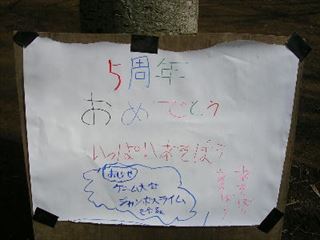 5周年
おめでとう
いっぱいあそぼう
おしらせ
ゲーム大会
ジャンボスライム